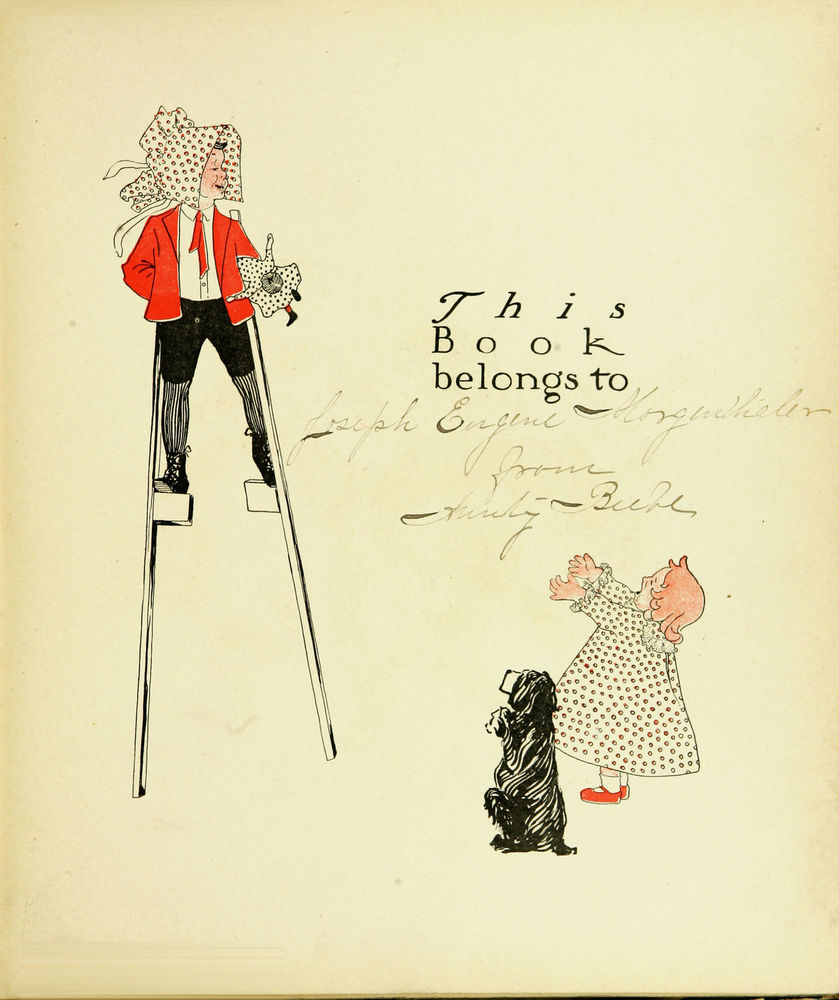 This
Book
belongs to
Joseph Eugene Morgenthaler
from
Aunty Beebe